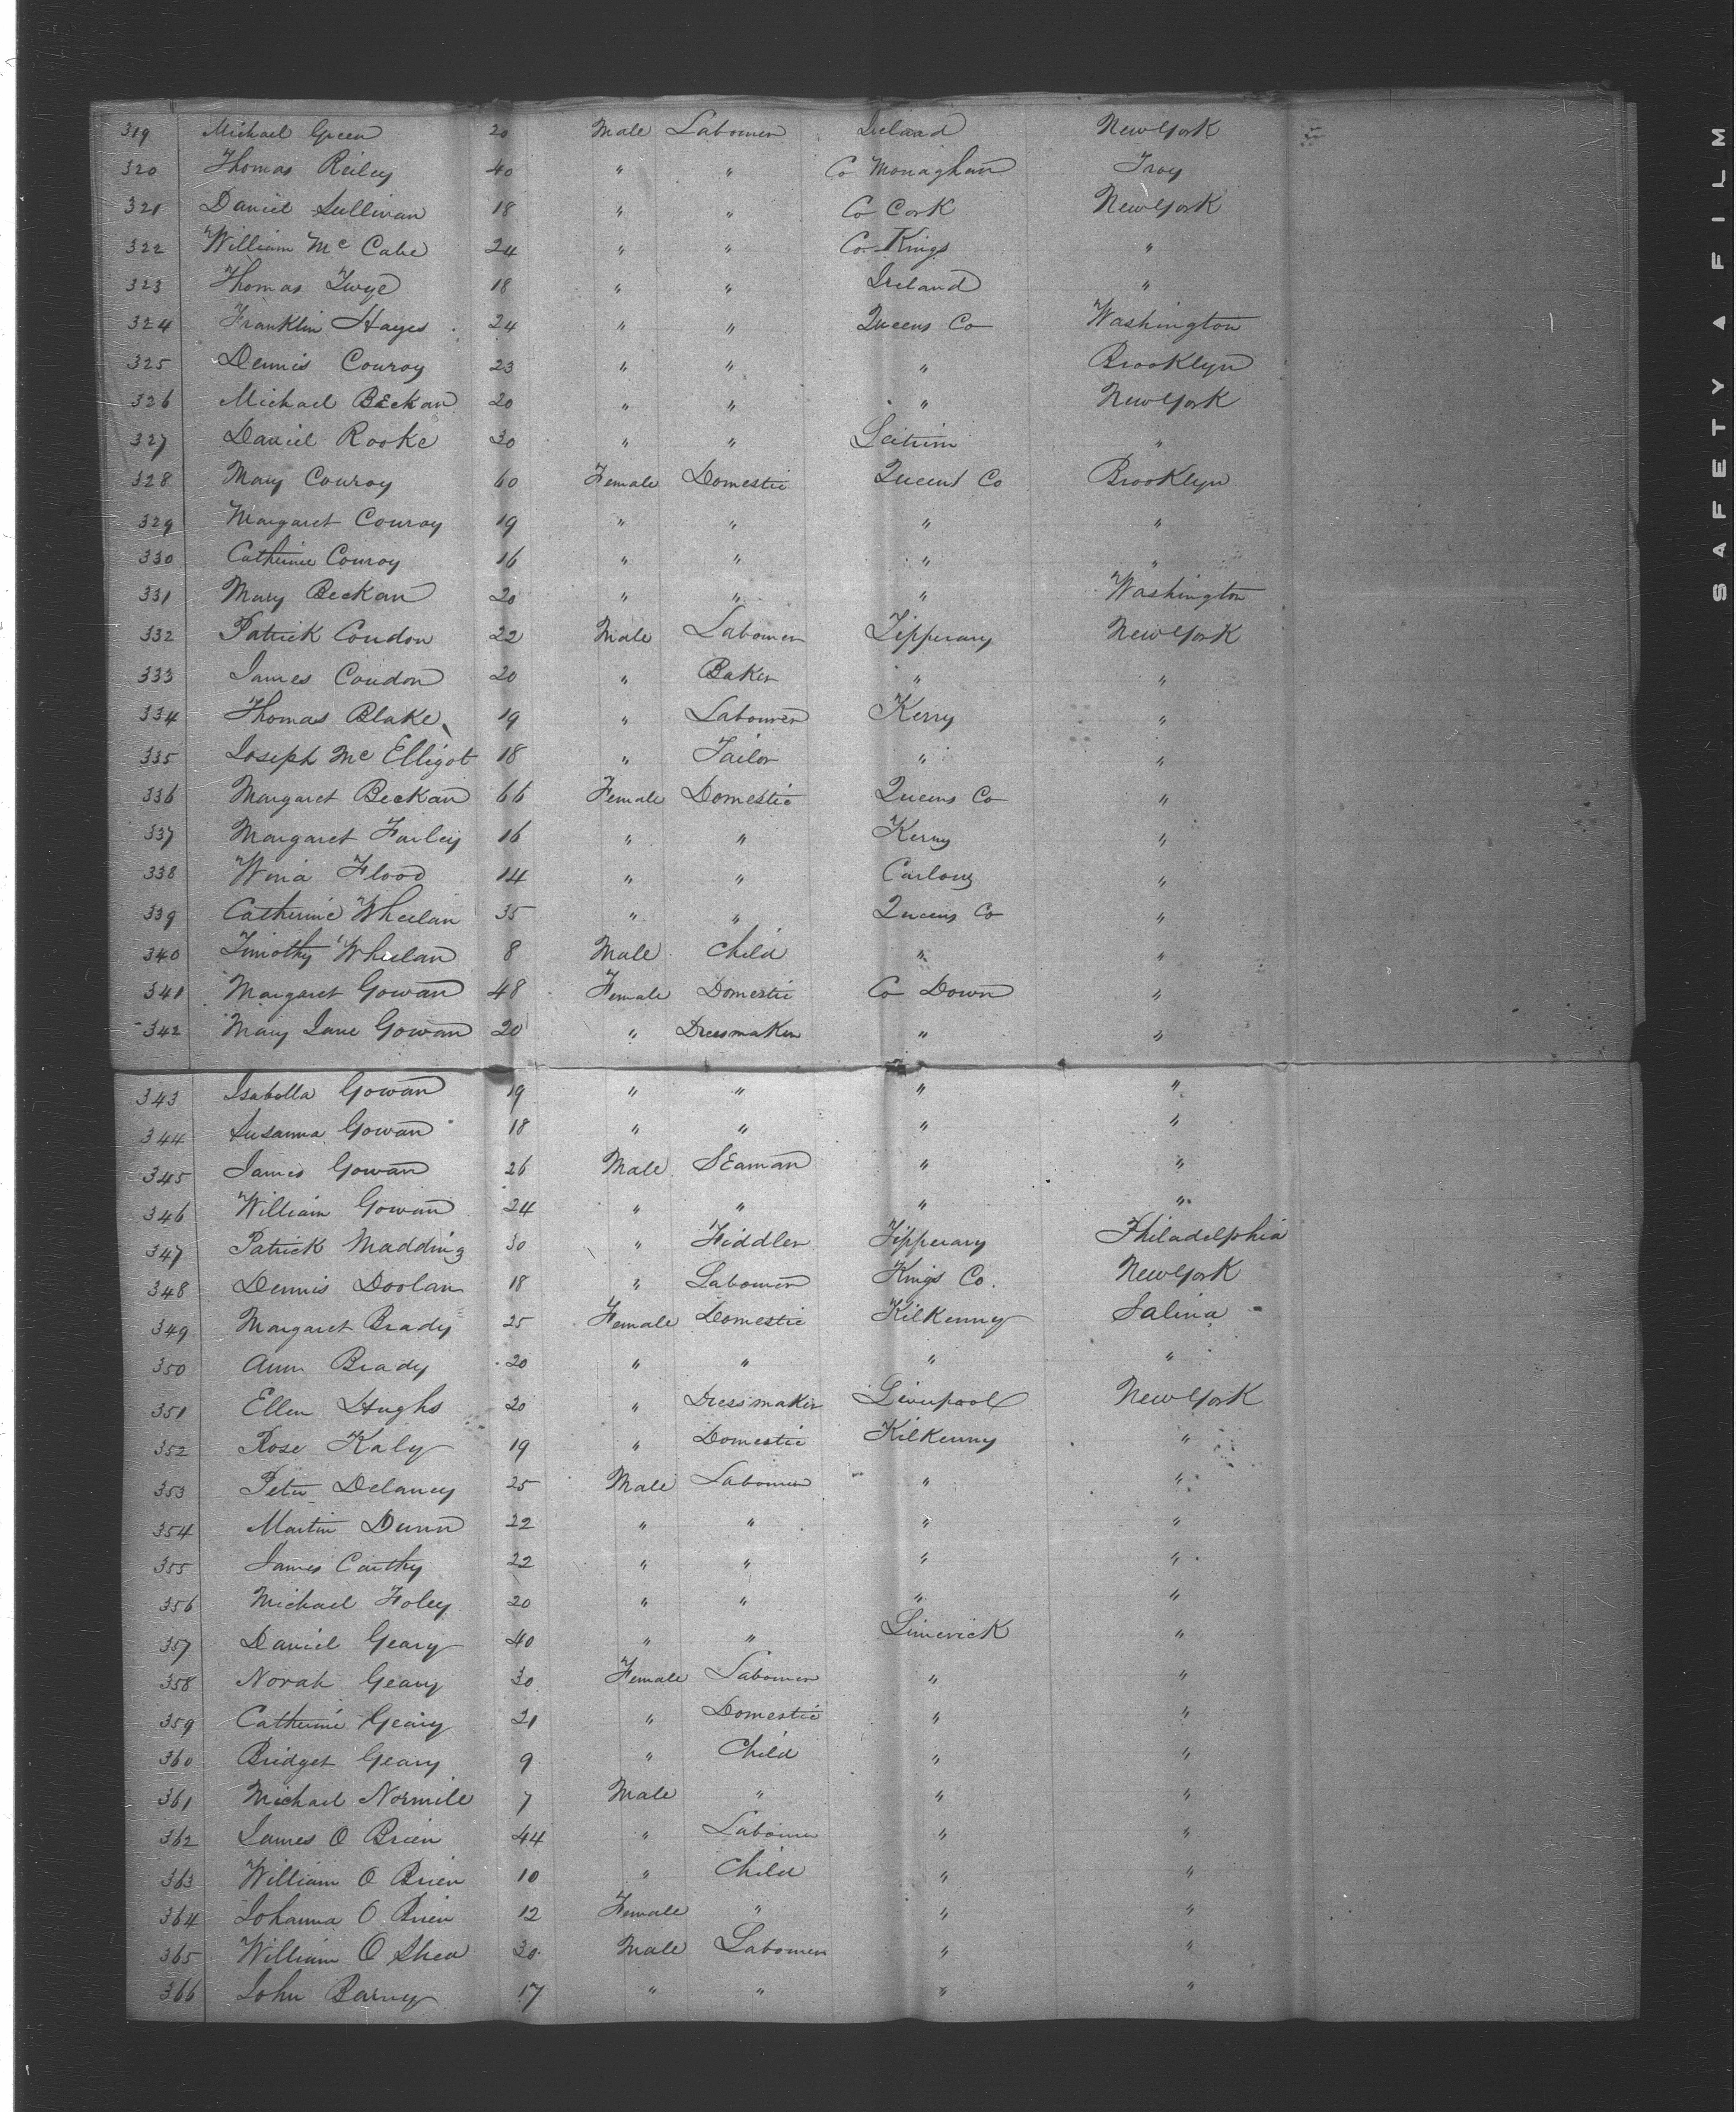 319 Michael Green 20 Male Labourer Ireland New York
320 Thomas Reiley 40 " " Co Monaghan Troy
321 Daniel Sullivan 18 " " Co Cork New York
322 William Mc Cabe 24 " " Co. Kings "
323 Thomas 18 " " Ireland "
324 Franklin Hayes 24 " " Queens Co Washington
325 Dennis Conroy 23 " " " Brooklyn
326 Michael Beckan 20 " " " New York
327 Daniel Rooke 30 " " Leitrim "
328 Mary Conroy 60 Female Domestic Queens Co Brooklyn
329 Margaret Conroy 19 " " " "
330 Catherine Conroy 16 " " " "
331 Mary Beckan 20 " " " Washington
332 Patrick Condon 22 Male Labourer Tipperary New York
333 James Condon 20 " Baker " "
334 Thomas Blake 19 " Labourer Kerry "
335 Joseph Mc Elligot 18 " Tailor " "
336 Margaret Beckan 66 Female Domestic Queens Co "
337 Margaret Farley 16 " " Kerry "
338 Wina Flood 14 " " "
339 Catherine Wheelan 35 " " Queens Co "
340 Timothy Wheelan 8 Male Child " "
341 Margaret Gowan 48 Female Domestic Co Down "
342 Mary Jane Gowan 20 " Dressmaker " "
343 Isabella Gowan 19 " " " "
344 Susanna Gowan 18 " " " "
345 James Gowan 26 Male Seaman " "
346 William Gowan 24 " " " "
347 Patrick Madding 30 " Fiddler Tipperary Philadelphia
348 Dennis Doolan 18 " Labourer Kings Co. New York
349 Margaret Brady 25 Female Domestic Kilkenny Salina
350 Ann Brady 20 " " " "
351 Ellen Hughs 20 " Dressmaker Liverpool New York
352 Rose Kaly 19 " Domestic Kilkenny "
353 Peter Delaney 25 Male Labourer " "
354 Martin Dunn 22 " " " "
355 James Carthy 22 " " " "
356 Michael Foley 20 " " " "
357 Daniel Geary 40 " " Limerick "
358 Norah Geary 30 Female Labourer " "
359 Catherine Geary 21 " Domestic " "
360 Bridget Geary 9 " Child " "
361 Michael Normile 7 Male " " "
362 James O Brien 44 " Labourer " "
363 William O Brien 10 " Child " "
364 Johanna O Brien 12 Female " " "
365 William O Shea 30 Male Labourer " "
366 John Barny 17 " " " "
SAFETY FILM